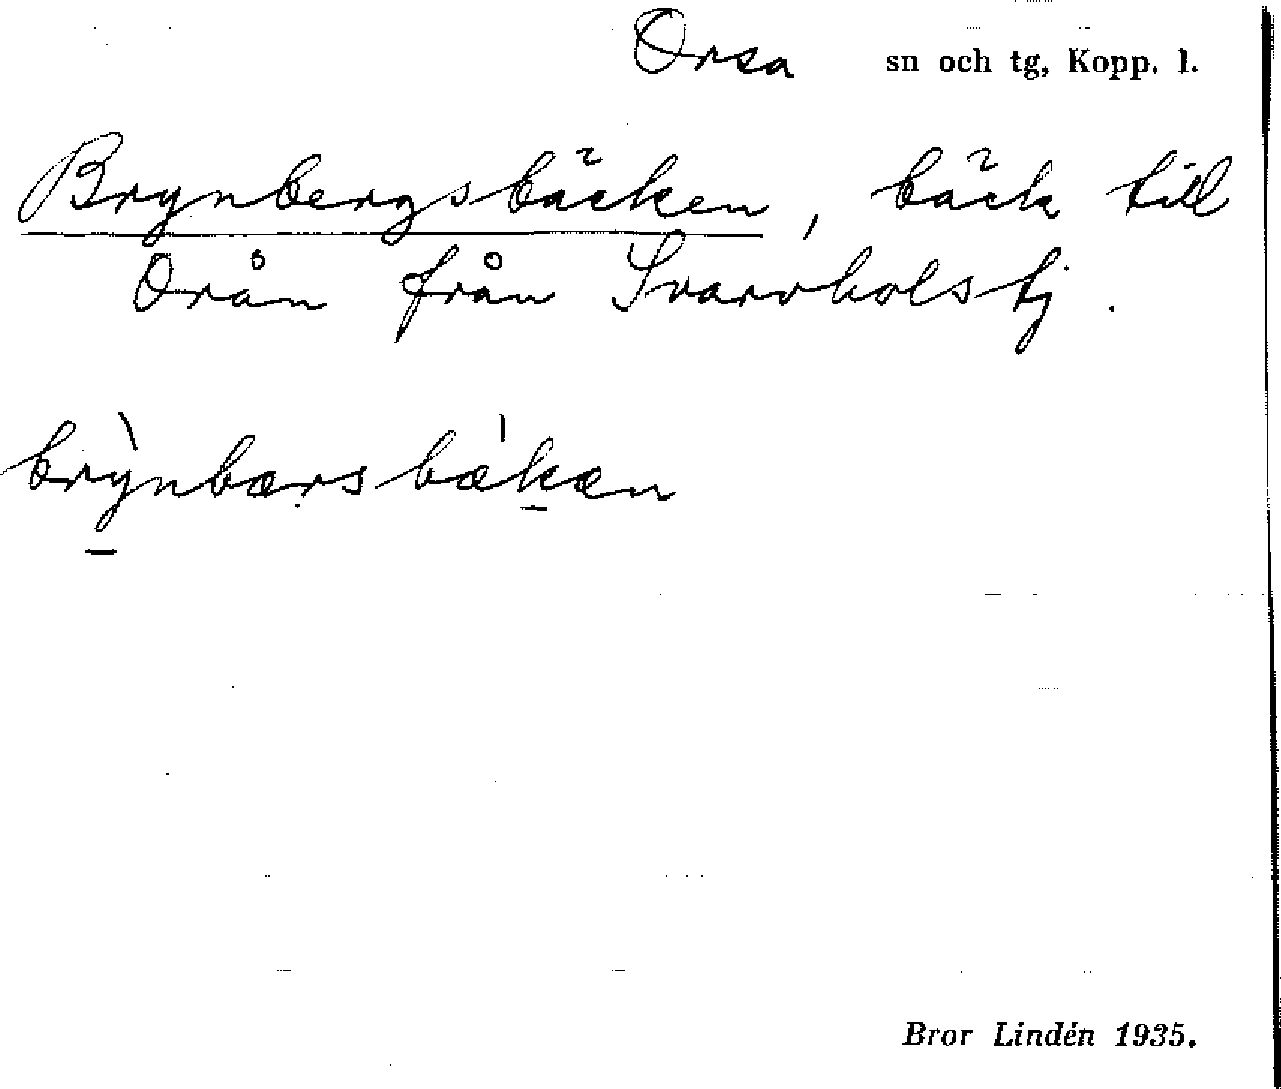 Orsa sn och tg, Kopp. l.
Brynbergsbäcken, bäck till
Orån från Svarvholstj.
brỳnbærsbækæn
Bror Lindén 1935.